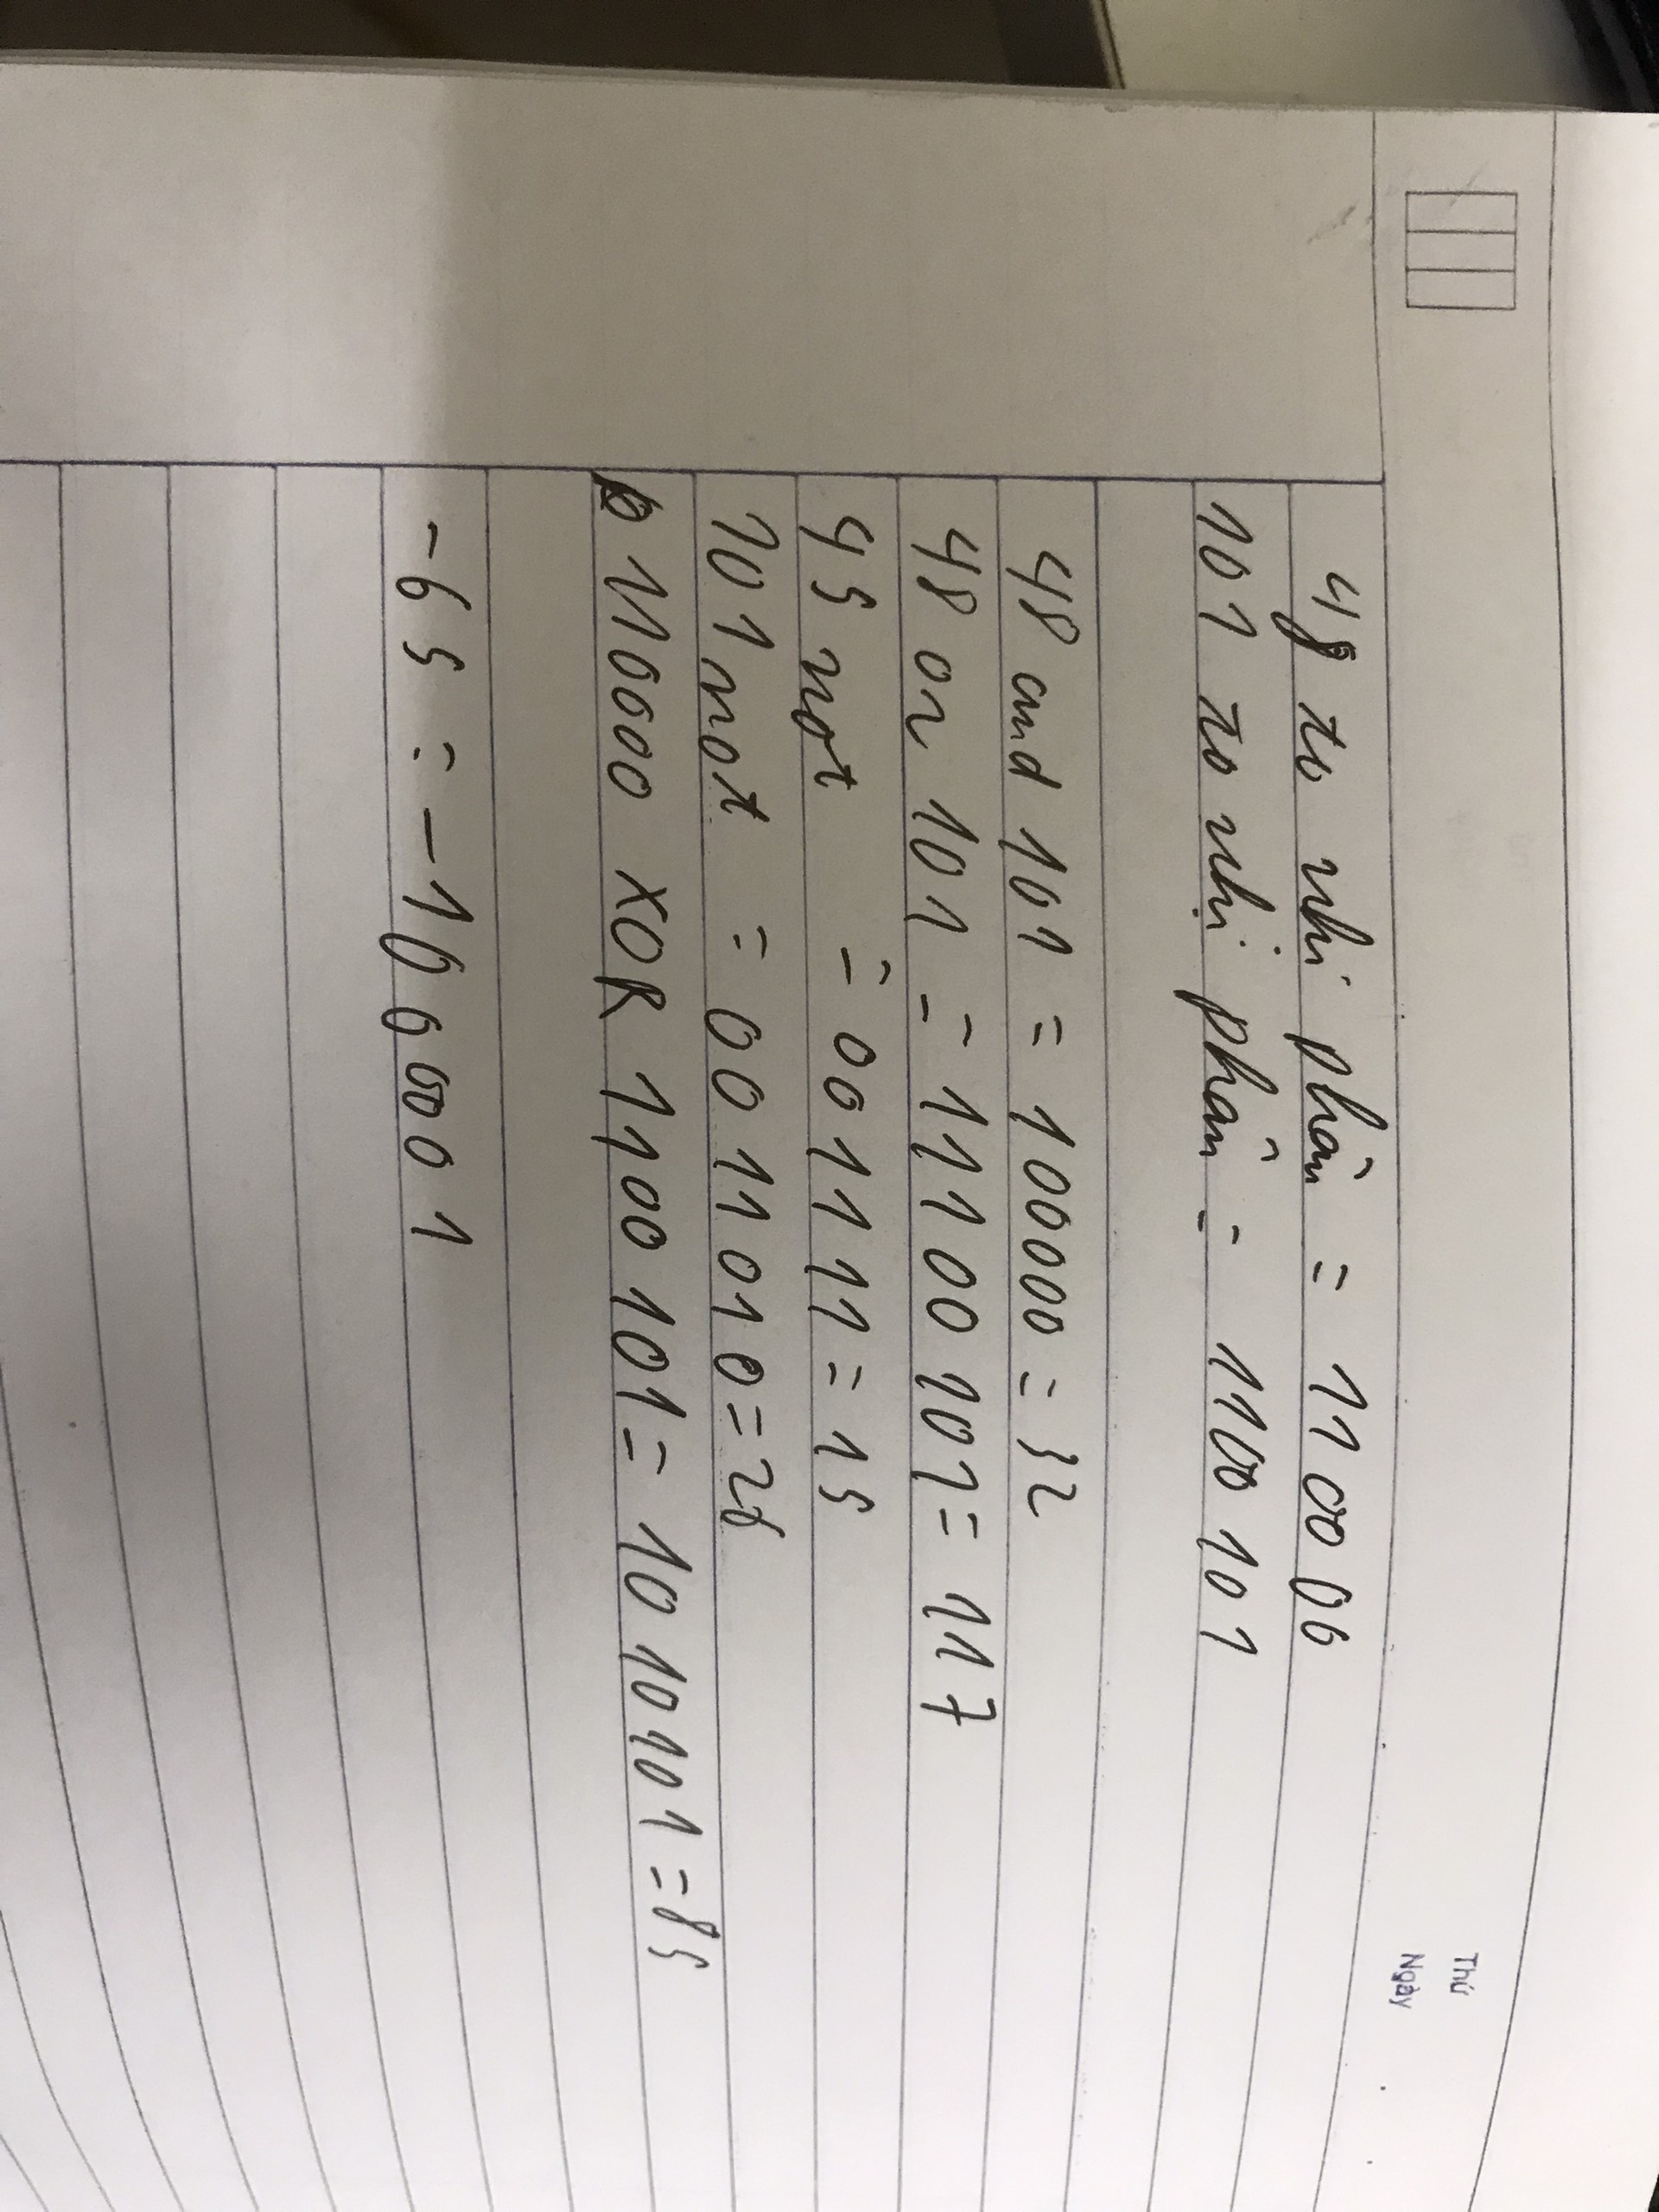 Thứ
Ngày
48 to nhị phân = 110000
101 to nhị phân = 1100101
48 and 101 = 100000 = 32
48 or 101 = 1110101 = 117
45 not = 001111 = 15
101 not = 0011010 = 26
0110000 XOR 1100101 = 1010101 = 85
-65 = -1000001